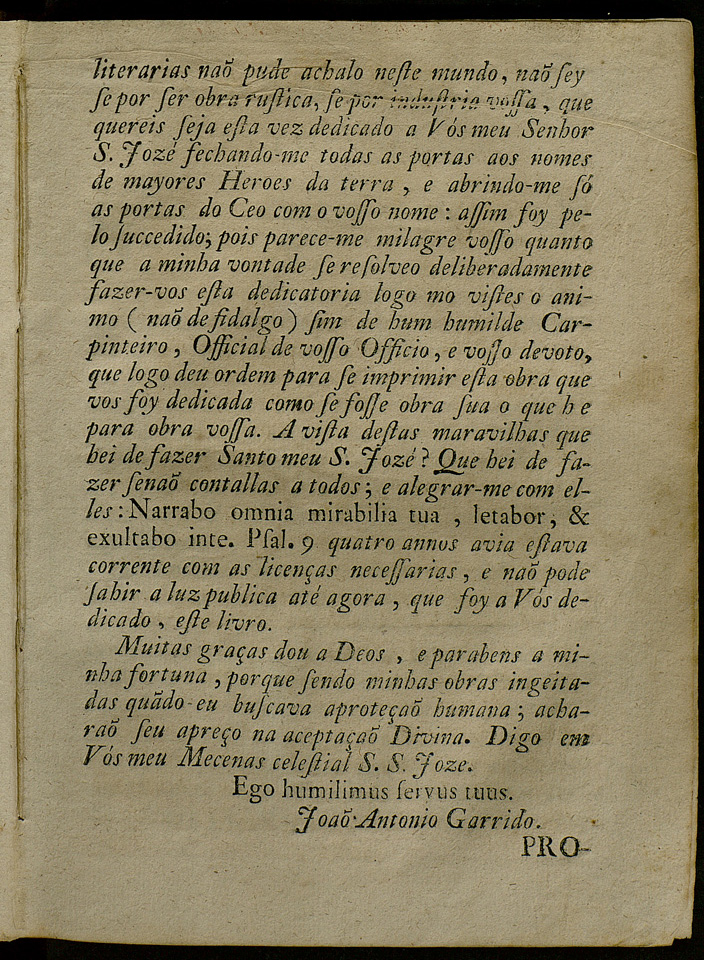 literarias naõ pude achalo neſte mundo, naõ ſey
ſe por ſer obra ruſtica, ſe por induſtria voſſa, que
quereis ſeja eſta vez dedicado a Vós meu Senhor
S. Jozé fechando-me todas as portas aos nomes
de mayores Heroes da terra, e abrindo-me ſó
as portas do Ceo com o voſſo nome: aſſim foy pe-
lo ſuccedido; pois parece-me milagre voſſo quanto
que a minha vontade ſe reſolveo deliberadamente
fazer-vos eſta dedicatoria logo mo viſtes o ani-
mo (naõ de fidalgo) ſim de hum humilde Car-
pinteiro, Official de voſſo Officio, e voſſo devoto,
que logo deu ordem para ſe imprimir eſta obra que
vos foy dedicada como ſe foſſe obra ſua o que he
para obra voſſa. A viſta deſtas maravilhas que
hei de fazer Santo meu S. Jozé? Que hei de fa-
zer ſenaõ contallas a todos; e alegrar-me com el-
les: Narrabo omnia mirabilia tua, letabor, &
exultabo inte. Pſal. 9 quatro annos avia eſtava
corrente com as licenças neceſſarias, e naõ pode
ſahir a luz publica até agora, que foy a Vós de-
dicado, eſte livro.
Muitas graças dou a Deos, e parabens a mi-
nha fortuna, porque ſendo minhas obras ingeita-
das quãdo eu buſcava aproteçaõ humana; acha-
raõ ſeu apreço na aceptaçaõ Divina. Digo em
Vós meu Mecenas celeſtial S. S. Joze.
Ego humilimus ſervus tuus.
Joaõ Antonio Garrido.
PRO-